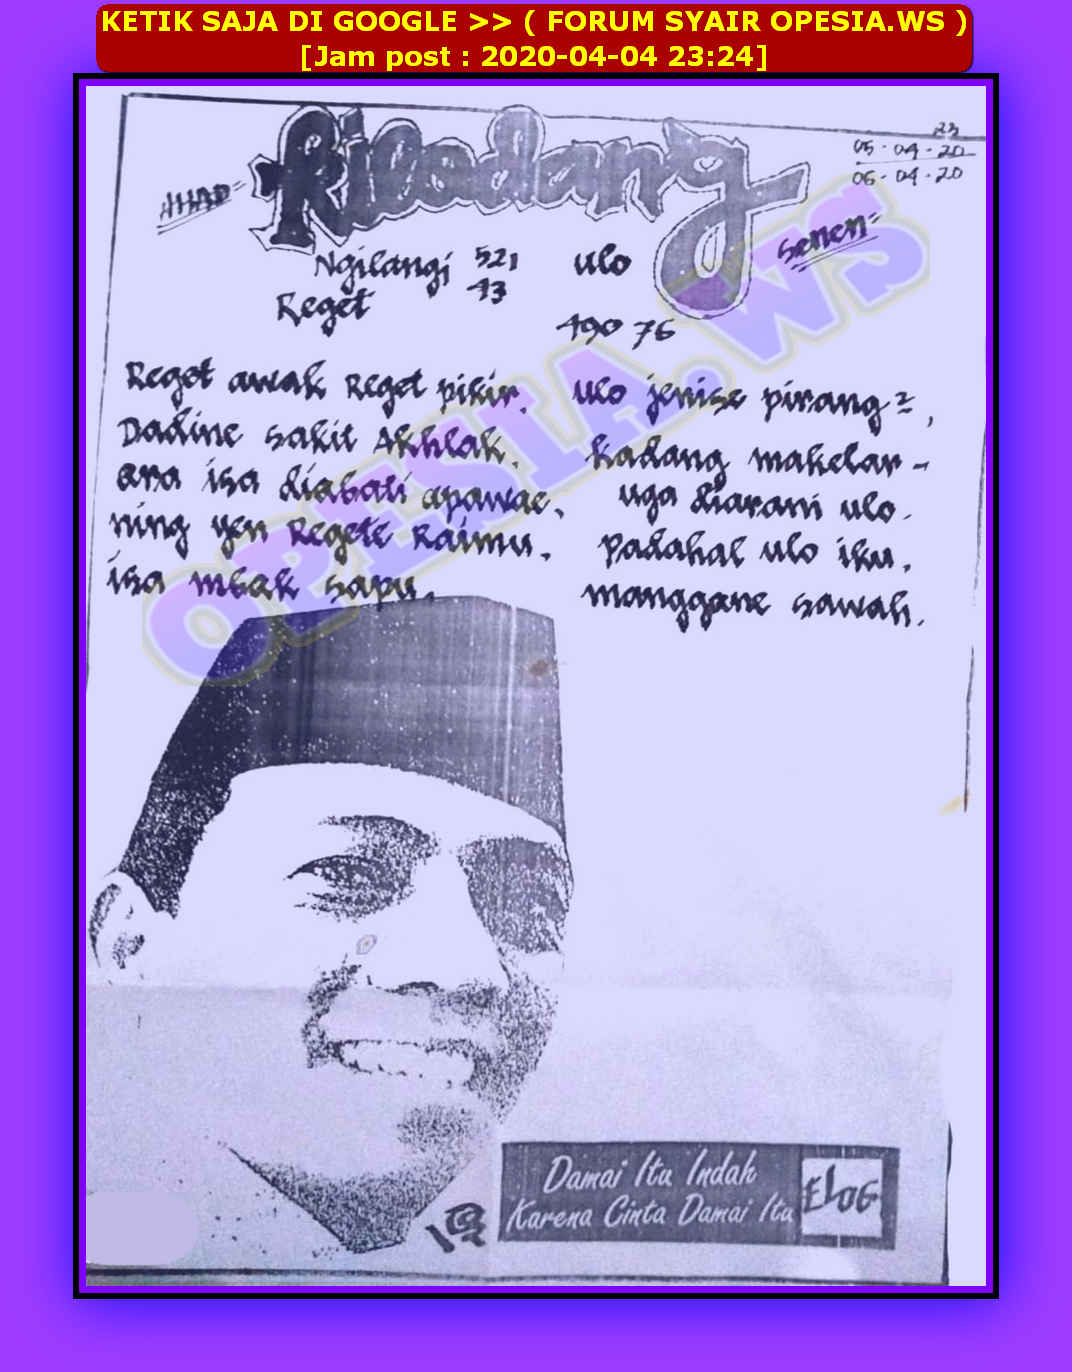 KETIK SAJA DI GOOGLE >> ( FORUM SYAIR OPESIA.WS )
[Jam post : 2020-04-04 23:24]
23
05-04-20
06-04-20
AHAD=
Kisadang
senen=
Ngilangi 521
Reget 43
ulo
490 76
Reget awak Reget pikir.
Dadine sakit Akhlak.
ora isa diobati apawae.
ning yen Regete Raimu.
isa mbok sapu.
ulo jenise pirang2,
kadang makelar-
uga diarani ulo.
padahal ulo iku.
manggone sawah.
OPESIA.WS
Damai Itu Indah
Karena Cinta Damai Itu
ELOG